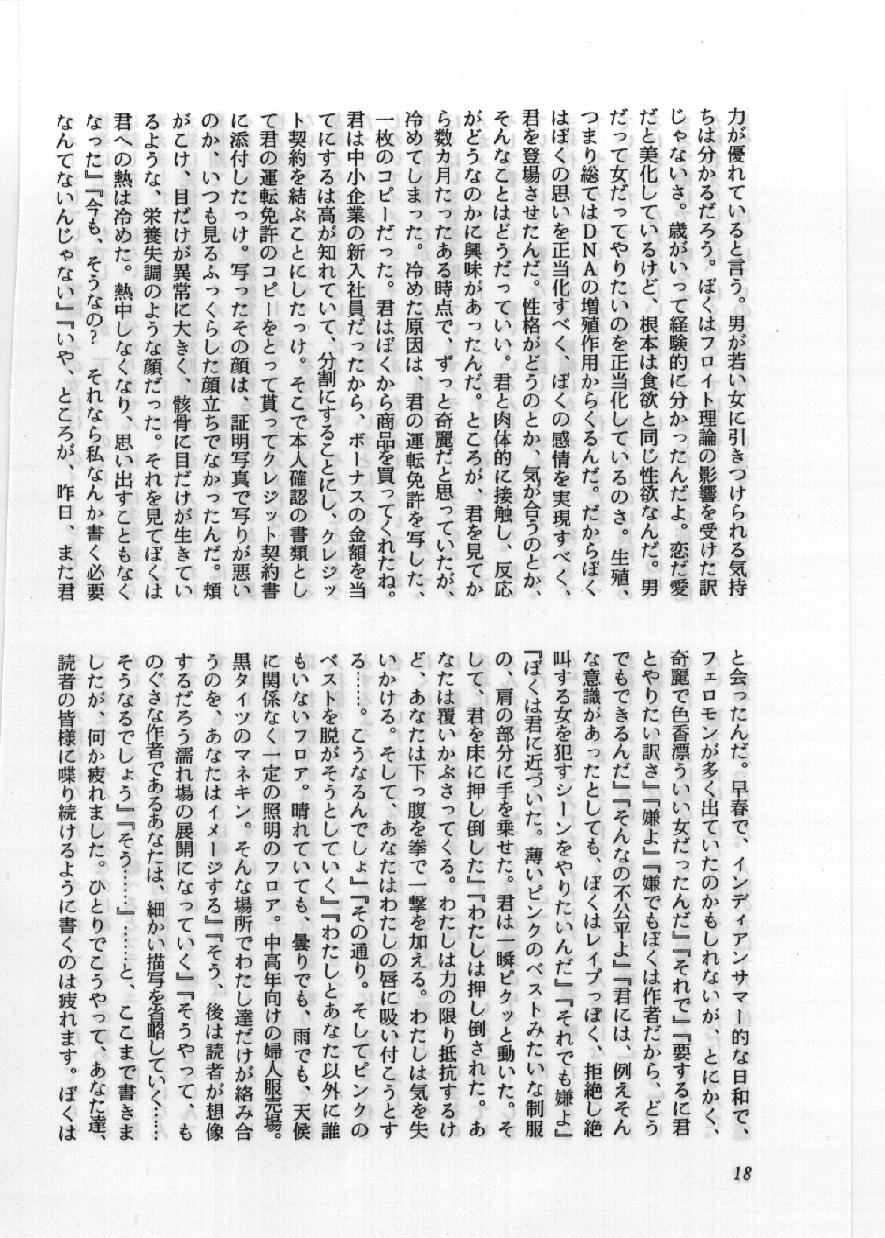 力が優れていると言う。男が若い女に引きつけられる気持
ちは分かるだろう。ぼくはフロイト理論の影響を受けた訳
じゃないさ。歳がいって経験的に分かったんだよ。恋だ愛
だと美化しているけど、根本は食欲と同じ性欲なんだ。男
だって女だってやりたいのを正当化しているのさ。生殖、
つまり総てはDNAの増殖作用からくるんだ。だからぼく
はぼくの思いを正当化すべく、ぼくの感情を実現すべく、
君を登場させたんだ。性格がどうのとか、気が合うのとか、
そんなことはどうだっていい。君と肉体的に接触し、反応
がどうなのかに興味があったんだ。ところが、君を見てか
ら数カ月たったある時点で、ずっと奇麗だと思っていたが、
冷めてしまった。冷めた原因は、君の運転免許を写した、
一枚のコピーだった。君はぼくから商品を買ってくれたね。
君は中小企業の新入社員だったから、ボーナスの金額を当
てにするは高が知れていて、分割にすることにし、クレジッ
ト契約を結ぶことにしたっけ。そこで本人確認の書類とし
て君の運転免許のコピーをとって貰ってクレジット契約書
に添付したっけ。写ったその顔は、証明写真で写りが悪い
のか、いつも見るふっくらした顔立ちでなかったんだ。頬
がこけ、目だけが異常に大きく、骸骨に目だけが生きてい
るような、栄養失調のような顔だった。それを見てぼくは
君への熱は冷めた。熱中しなくなり、思い出すこともなく
なった』『今も、そうなの?　それなら私なんか書く必要
なんてないんじゃない』『いや、ところが、昨日、また君
と会ったんだ。早春で、インディアンサマー的な日和で、
フェロモンが多く出ていたのかもしれないが、とにかく、
奇麗で色香漂ういい女だったんだ』『それで』『要するに君
とやりたい訳さ』『嫌よ』『嫌でもぼくは作者だから、どう
でもできるんだ』『そんなの不公平よ』『君には、例えそん
な意識があったとしても、ぼくはレイプっぽく、拒絶し絶
叫する女を犯すシーンをやりたいんだ』『それでも嫌よ』
『ぼくは君に近づいた。薄いピンクのベストみたいな制服
の、肩の部分に手を乗せた。君は一瞬ピクッと動いた。そ
して、君を床に押し倒した』『わたしは押し倒された。あ
なたは覆いかぶさってくる。わたしは力の限り抵抗するけ
ど、あなたは下っ腹を拳で一撃を加える。わたしは気を失
いかける。そして、あなたはわたしの唇に吸い付こうとす
る……。こうなるんでしょ』『その通り。そしてピンクの
ベストを脱がそうとしていく』『わたしとあなた以外に誰
もいないフロア。晴れていても、曇りでも、雨でも、天候
に関係なく一定の照明のフロア。中高年向けの婦人服売場。
黒タイツのマネキン。そんな場所でわたし達だけが絡み合
うのを、あなたはイメージする』『そう、後は読者が想像
するだろう濡れ場の展開になっていく』『そうやって、も
のぐさな作者であるあなたは、細かい描写を省略していく……
そうなるでしょう』『そう……』……と、ここまで書きま
したが、何か疲れました。ひとりでこうやって、あなた達、
読者の皆様に喋り続けるように書くのは疲れます。ぼくは
18